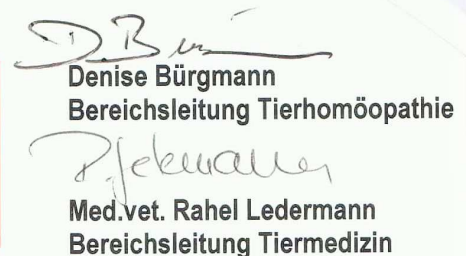 Denise Bürgmann
Bereichsleitung Tierhomöopathie
Med.vet. Rahel Ledermann
Bereichsleitung Tiermedizin